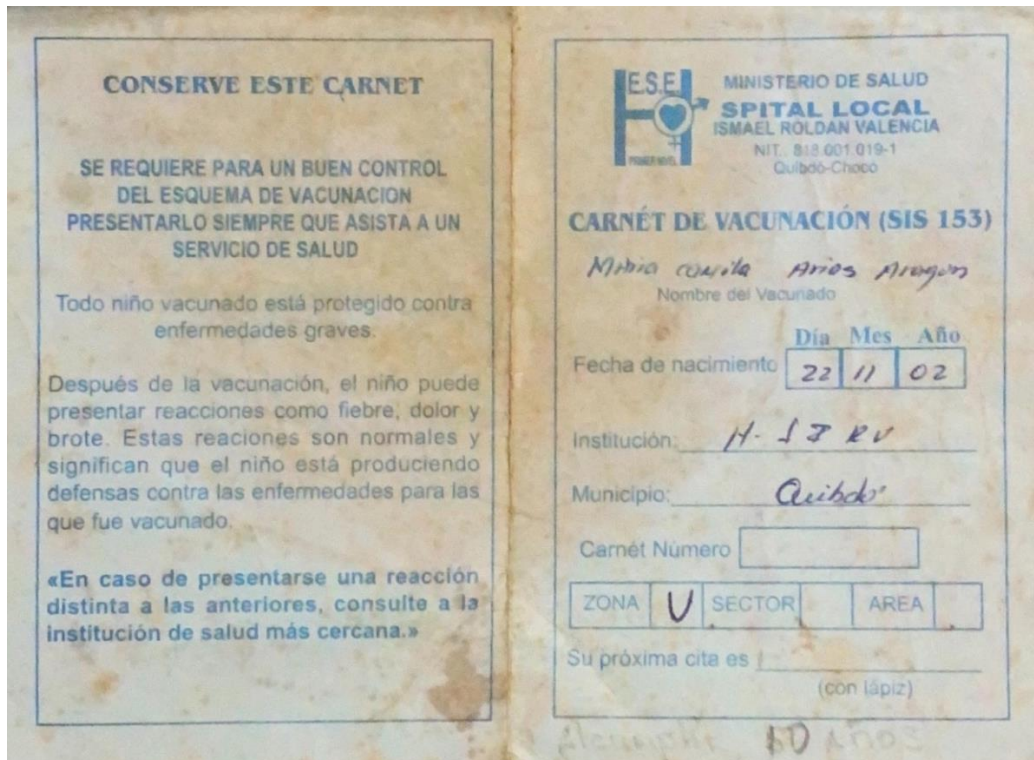 CONSERVE ESTE CARNET
SE REQUIERE PARA UN BUEN CONTROL
DEL ESQUEMA DE VACUNACION
PRESENTARLO SIEMPRE QUE ASISTA A UN
SERVICIO DE SALUD
Todo niño vacunado está protegido contra
enfermedades graves.
Después de la vacunación, el niño puede
presentar reacciones como fiebre, dolor y
brote. Estas reaciones son normales y
significan que el niño está produciendo
defensas contra las enfermedades para las
que fue vacunado.
«En caso de presentarse una reacción
distinta a las anteriores, consulte a la
institución de salud más cercana.»
E.S.E.
PRIMER NIVEL
MINISTERIO DE SALUD
SPITAL LOCAL
ISMAEL ROLDAN VALENCIA
NIT.: 818.001.019-1
Quibdó-Chocó
CARNÉT DE VACUNACIÓN (SIS 153)
Arias Aragon
Nombre del Vacunado
Día Mes Año
Fecha de nacimiento 22 11 02
Institución: H-I
Municipio: Quibdó
Carnét Número
ZONA U SECTOR AREA
Su próxima cita es
(con lápiz)